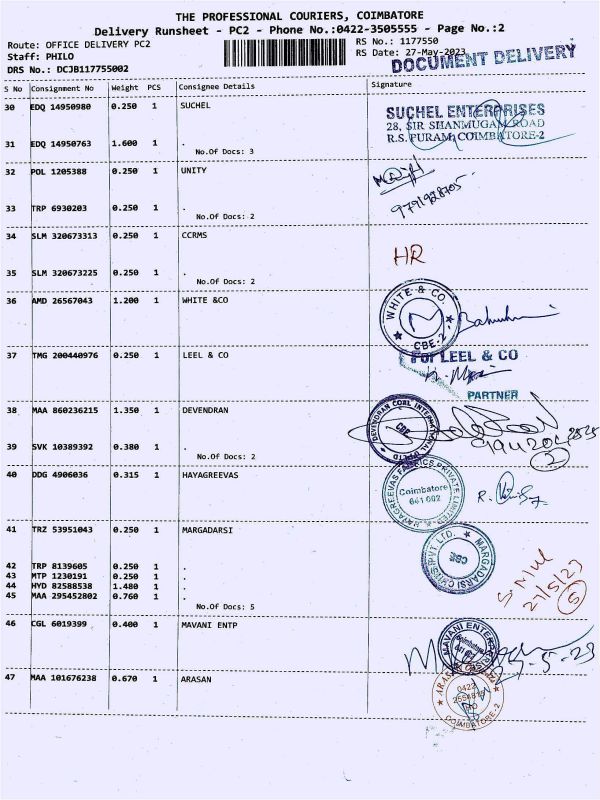 THE PROFESSIONAL COURIERS, COIMBATORE
Delivery Runsheet - PC2 - Phone No.:0422-3505555 - Page No.:2
Route: OFFICE DELIVERY PC2
RS No.: 1177550
Staff: PHILO
RS Date: 27-May-2023
DRS No.: DCJB117755002
DOCUMENT DELIVERY
S No Consignment No Weight PCS Consignee Details Signature
30 EDQ 14950980 0.250 1 SUCHEL
SUCHEL ENTERPRISES
28, SIR SHANMUGAM ROAD
R.S. PURAM, COIMBATORE-2
31 EDQ 14950763 1.600 1 .
No.Of Docs: 3
32 POL 1205388 0.250 1 UNITY
33 TRP 6930203 0.250 1 .
No.Of Docs: 2
34 SLM 320673313 0.250 1 CCRMS
HR
35 SLM 320673225 0.250 1 .
No.Of Docs: 2
36 AMD 26567043 1.200 1 WHITE &CO
WHITE & CO.
CBE-2
37 TMG 200440976 0.250 1 LEEL & CO
For LEEL & CO
PARTNER
38 MAA 860236215 1.350 1 DEVENDRAN
DEVENDRAN COAL INTERNATIONAL
CBE
39 SVK 10389392 0.380 1 .
No.Of Docs: 2
2
40 DDG 4906036 0.315 1 HAYAGREEVAS
HAYAGREEVAS FABRICS PRIVATE LIMITED
Coimbatore
641 002
41 TRZ 53951043 0.250 1 MARGADARSI
MARGADARSI CHITS PVT LTD.
CBE
42 TRP 8139605 0.250 1 .
43 MTP 1230191 0.250 1 .
44 HYD 82588538 1.480 1 .
45 MAA 295452802 0.760 1 .
27/5/23
5
No.Of Docs: 5
46 CGL 6019399 0.400 1 MAVANI ENTP
MAVANI ENTERPRISES
47 MAA 101676238 0.670 1 ARASAN
ARASAN
0422
COIMBATORE-2